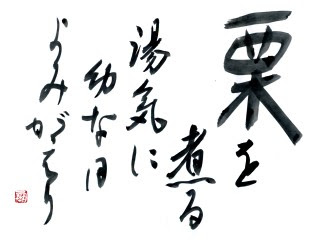 栗を
煮る
湯気に
幼な日
よみがへり